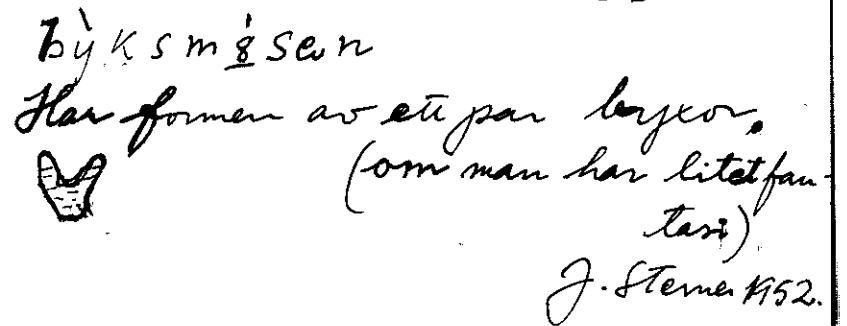 bỳksmǿsen
Har formen av ett par byxor.
(om man har litet fan-
tasi)
J. Sterner 1952.